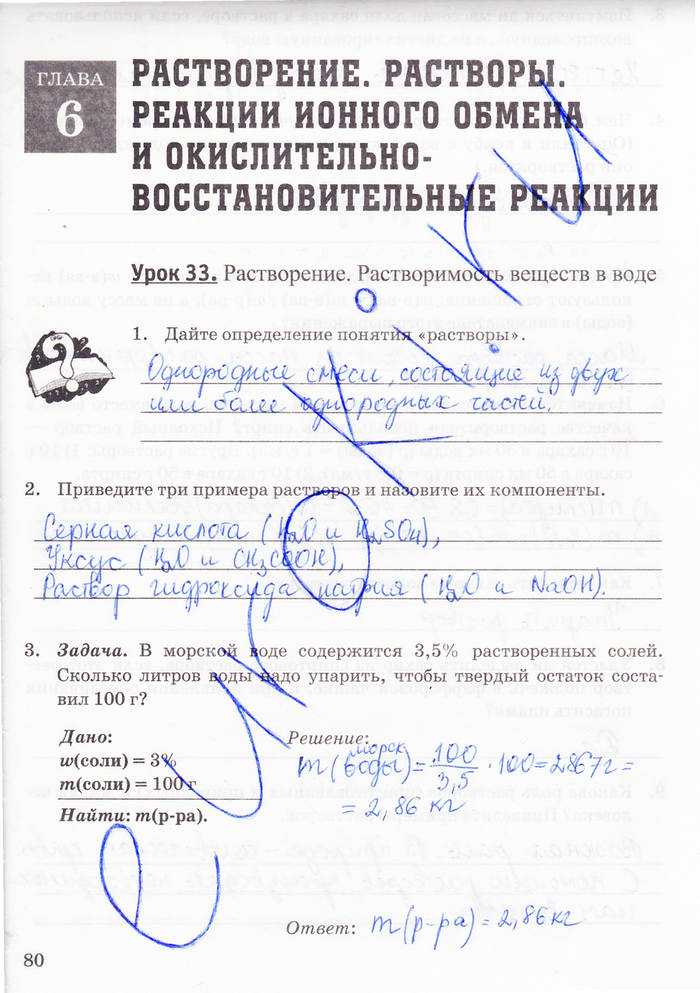 ГЛАВА
6
РАСТВОРЕНИЕ. РАСТВОРЫ.
РЕАКЦИИ ИОННОГО ОБМЕНА
И ОКИСЛИТЕЛЬНО-
ВОССТАНОВИТЕЛЬНЫЕ РЕАКЦИИ
Урок 33. Растворение. Растворимость веществ в воде
1. Дайте определение понятия «растворы».
Однородные смеси, состоящие из двух
или более однородных частей.
2. Приведите три примера растворов и назовите их компоненты.
Серная кислота (H2O и H2SO4),
Уксус (H2O и CH3COOH),
Раствор гидроксида натрия (H2O и NaOH).
3. Задача. В морской воде содержится 3,5% растворенных солей.
Сколько литров воды надо упарить, чтобы твердый остаток соста-
вил 100 г?
Дано:
w(соли) = 3%
m(соли) = 100 г
Найти: m(р-ра).
Решение:
m(морск воды) = 100/3,5 · 100 = 2867г =
= 2,86 кг
Ответ: m(р-ра) = 2,86 кг
80